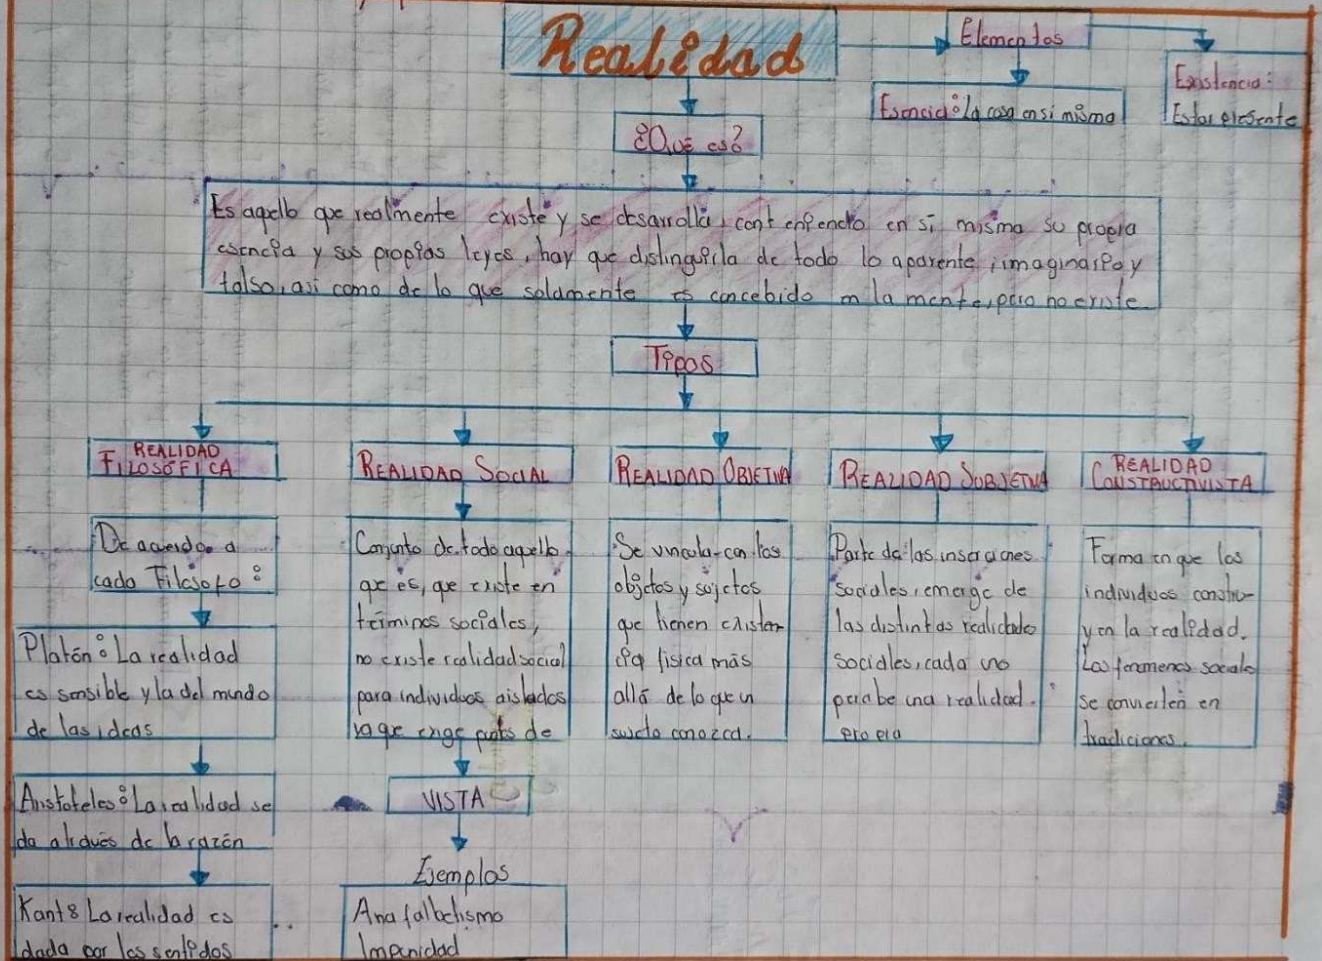 Realidad
Elementos
Esencia: la cosa en si misma
Existencia:
Estar presente
¿Qué es?
Es aquello que realmente existe y se desarrolla, conteniendo en sí misma su propia
esencia y sus propias leyes, hay que distinguirla de todo lo aparente, imaginario y
falso, asi como de lo que solamente es concebido en la mente, pero no existe
Tipos
REALIDAD
FILOSÓFICA
De acuerdo a
cada Filósofo:
Platón: La realidad
es sensible y la del mundo
de las ideas
Aristoteles: La realidad se
da através de la razón
Kant: La realidad es
dada por los sentidos
REALIDAD SOCIAL
Conjunto de todo aquello
que es, que existe en
términos sociales,
no existe realidad social
para individuos aislados
ya que exige puntos de
VISTA
Ejemplos
Anafalbetismo
Impunidad
REALIDAD OBJETIVA
Se vincula con los
objetos y sujetos
que tienen existen-
cia física más
allá de lo que un
sujeto conozca.
REALIDAD SUBJETIVA
Parte de las
sociales, emerge de
las distintas realidades
sociales, cada uno
percibe una realidad
propia
REALIDAD
CONSTRUCTIVISTA
Forma en que los
individuos constru-
yen la realidad.
Los fenomenos sociales
se convierten en
tradiciones.